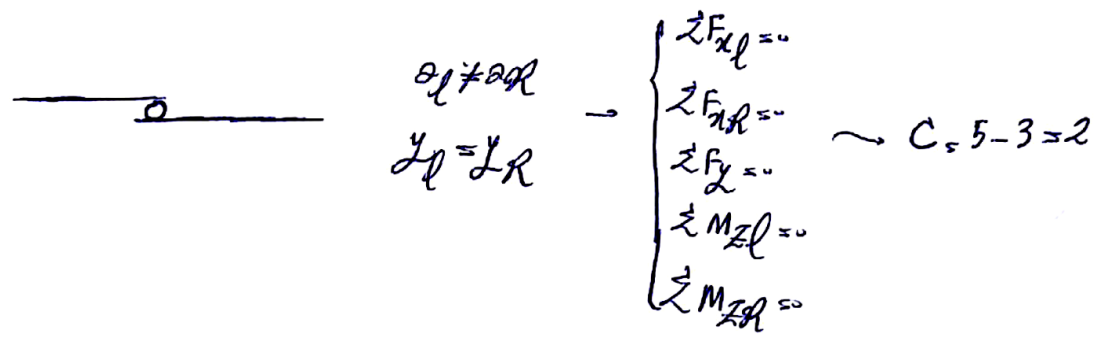 ∂ₗ ≠ ∂R
yₗ = yR
→
ΣFxl = 0
ΣFxR = 0
ΣFy = 0
ΣMzl = 0
ΣMzR = 0
⇝ C = 5 - 3 = 2